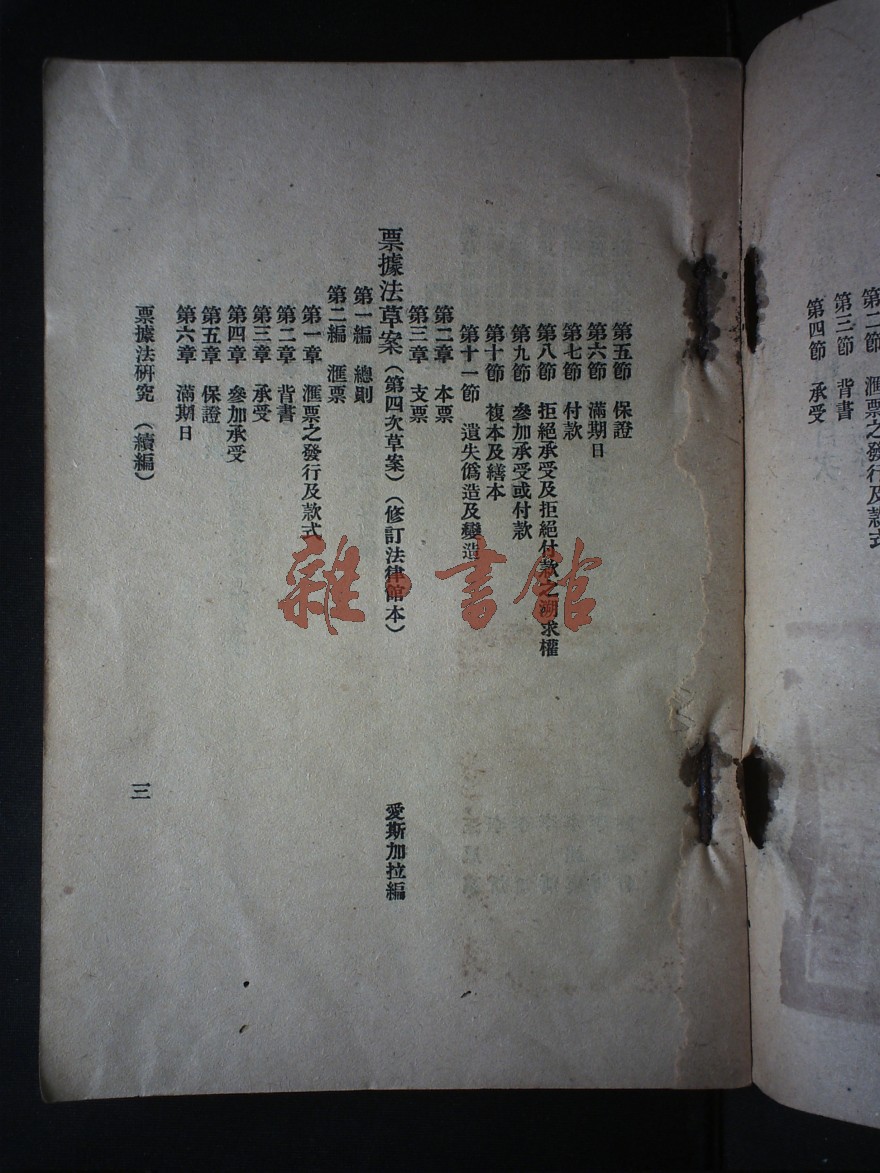 第二節 匯票之發行及款式
第三節 背書
第四節 承受
第五節 保證
第六節 滿期日
第七節 付款
第八節 拒絕承受及拒絕付款之溯求權
第九節 參加承受或付款
第十節 複本及繕本
第十一節 遺失僞造及變造
第二章 本票
第三章 支票
票據法草案（第四次草案）（修訂法律館本） 愛斯加拉編
第一編 總則
第二編 匯票
第一章 匯票之發行及款式
第二章 背書
第三章 承受
第四章 參加承受
第五章 保證
第六章 滿期日
票據法研究 （續編） 三
雜·書館